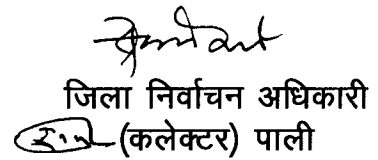 जिला निर्वाचन अधिकारी
(कलेक्टर) पाली